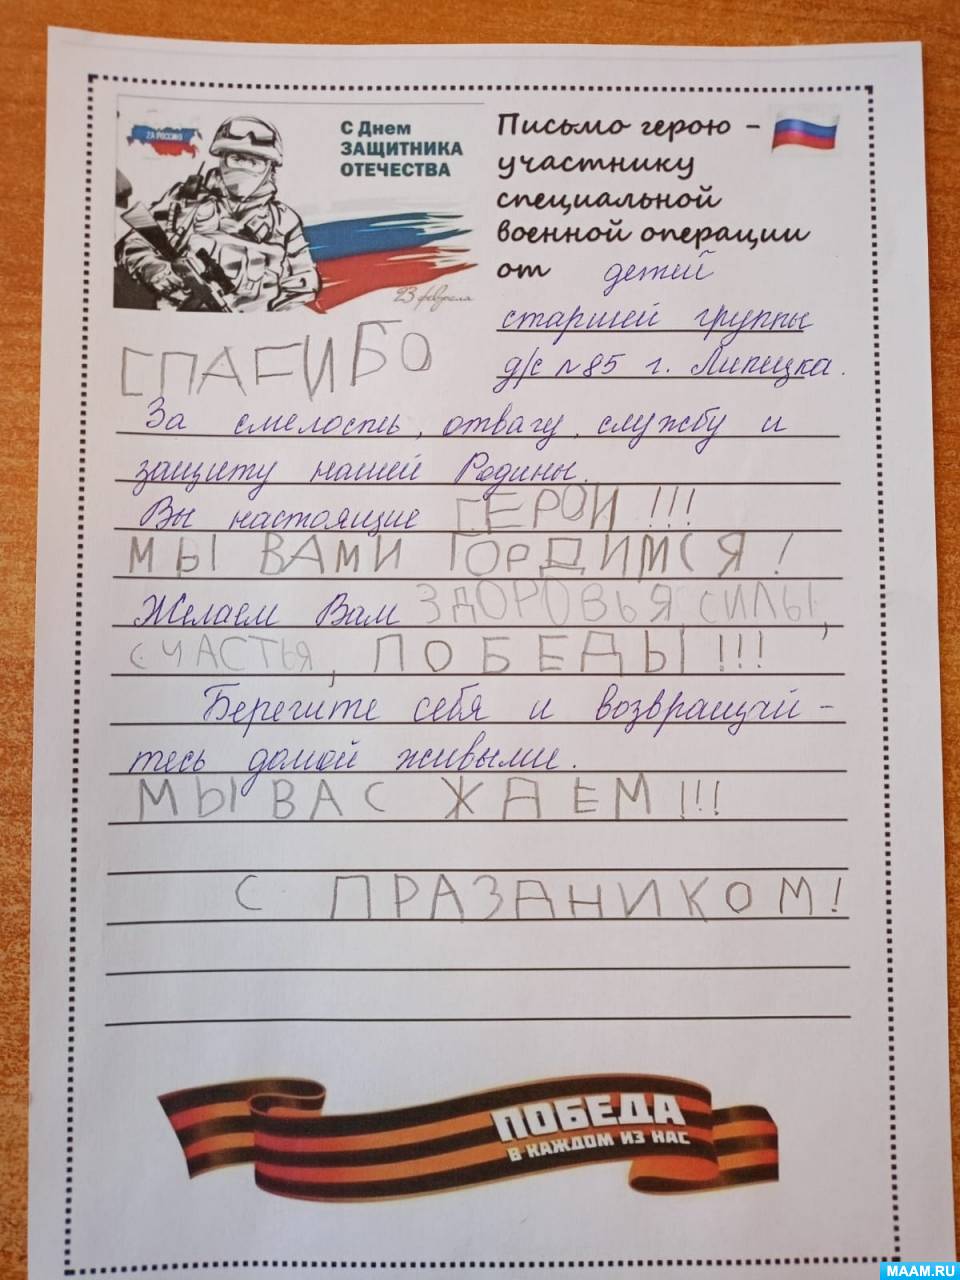 ZА РОССИЮ
С Днем
ЗАЩИТНИКА
ОТЕЧЕСТВА
23 февраля
Письмо герою –
участнику
специальной
военной операции
от детей
старшей группы
д/с №85 г. Липецка.
СПАСИБО
За смелость, отвагу, службу и
защиту нашей Родины.
Вы настоящие ГЕРОИ!!!
МЫ ВАМИ ГОРДИМСЯ!
Желаем Вам ЗДОРОВЬЯ, СИЛЫ,
СЧАСТЬЯ, ПОБЕДЫ!!!
Берегите себя и возвращай-
тесь домой живыми.
МЫ ВАС ЖДЕМ!!!
С ПРАЗДНИКОМ!
ПОБЕДА
В КАЖДОМ ИЗ НАС
MAAM.RU